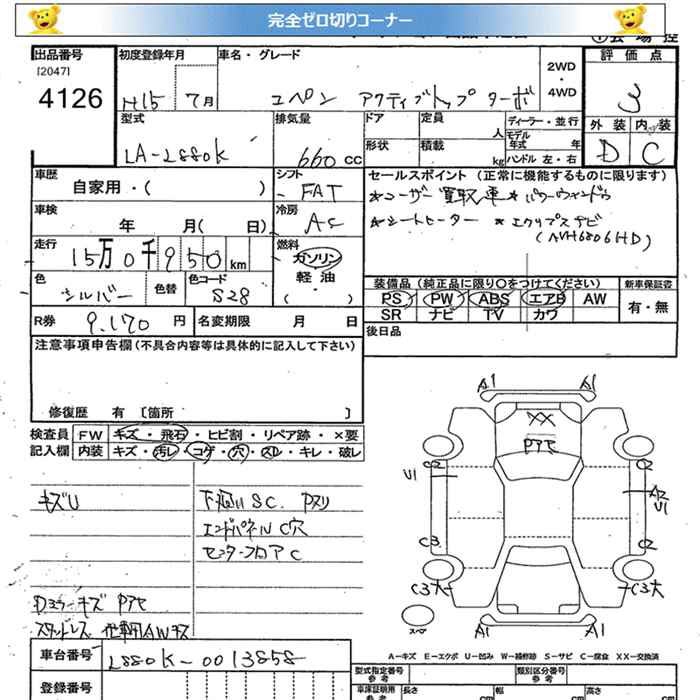 完全ゼロ切りコーナー
出品番号
[2047]
4126
初度登録年月
H15 7月
車名・グレード
コペン アクティブトップ ターボ
2WD
・
4WD
評 価 点
3
外 装 内 装
D C
型式
LA-L880K
排気量
660 cc
ドア
定員
人
形状
積載
kg
ディーラー・並行
モデル
年式 年
ハンドル 左・右
車歴
自家用・( )
シフト
FAT
車検
年 月( 日)
冷房
AC
走行
15万0千950km
燃料
ガソリン
軽油
( ・ )
色
シルバー
色替
色コード
S28
R券
9,170円
名変期限 月 日
セールスポイント (正常に機能するものに限ります)
*ユーザー買取車 *パワーウィンドウ
*シートヒーター *エクリプスナビ
(AVN6806HD)
装備品 (純正品に限り〇をつけてください)
新車保証書
PS PW ABS エアB AW
SR ナビ TV カワ
有・無
後日品
注意事項申告欄 (不具合内容等は具体的に記入して下さい)
修復歴 有 〔箇所 〕
検査員 FW キズ・飛石・ヒビ割・リペア跡・×要
記入欄 内装 キズ・汚レ・コゲ・穴・スレ・キレ・破レ
キズU
下廻りSC Pヌリ
エンドパネルC穴
センターフロアC
Dミラーキズ Pアセ
スタッドレス 他車用AWキズ
A1 A1
XX
Pアセ
C2 C2
U1
A2
U1
C3 C2
C3大 C3大
スペア
A1 A1
A-キズ E-エクボ U-凹み W-補修跡 S-サビ C-腐食 XX-交換済
車台番号
L880K-0013858
登録番号
型式指定番号
参考
類別区分番号
参考
車庫証明用
参考
長さ
cm
幅
cm
高さ
cm